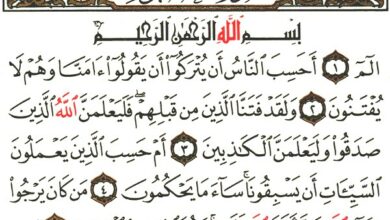 بِسْمِ ٱللَّهِ ٱلرَّحْمَٰنِ ٱلرَّحِيمِ
الٓمٓ ١ أَحَسِبَ ٱلنَّاسُ أَن يُتْرَكُوٓا۟ أَن يَقُولُوٓا۟ ءَامَنَّا وَهُمْ لَا
يُفْتَنُونَ ٢ وَلَقَدْ فَتَنَّا ٱلَّذِينَ مِن قَبْلِهِمْ ۖ فَلَيَعْلَمَنَّ ٱللَّهُ ٱلَّذِينَ
صَدَقُوا۟ وَلَيَعْلَمَنَّ ٱلْكَٰذِبِينَ ٣ أَمْ حَسِبَ ٱلَّذِينَ يَعْمَلُونَ
ٱلسَّيِّـَٔاتِ أَن يَسْبِقُونَا ۚ سَآءَ مَا يَحْكُمُونَ ٤ مَن كَانَ يَرْجُوا۟